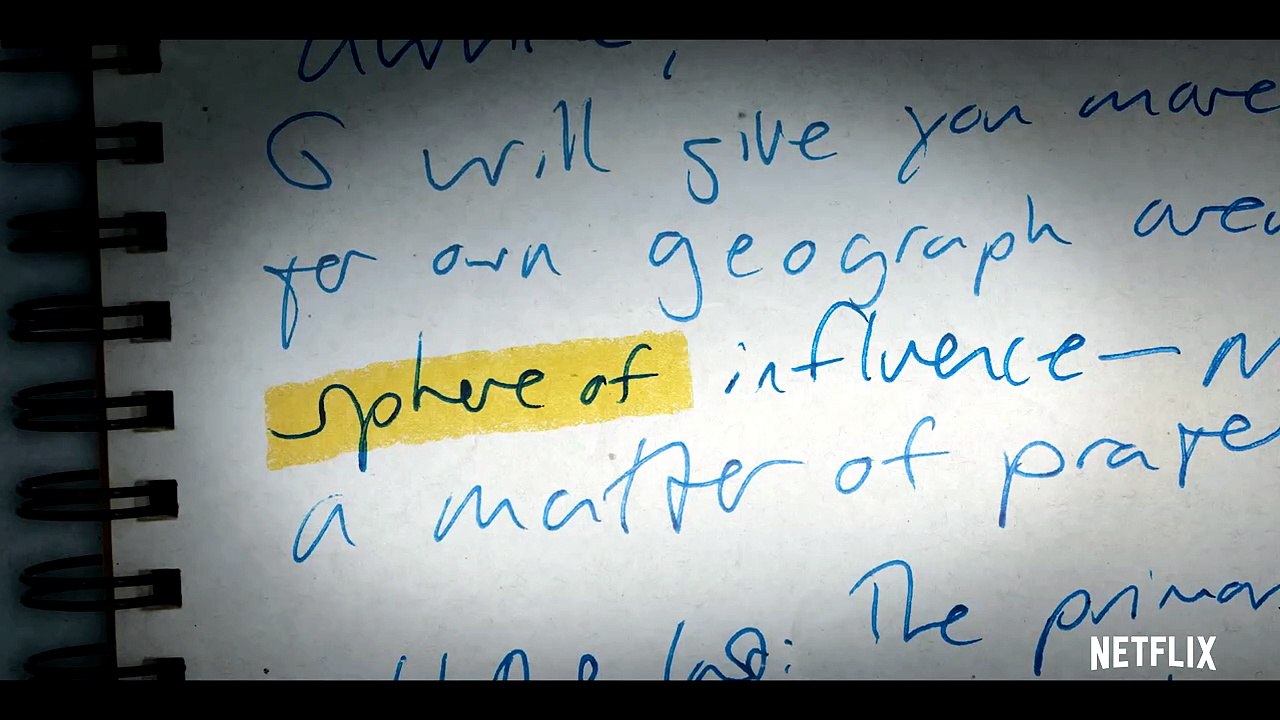 G will give you more
for own geograph area
sphere of influence — N
a matter of praye
last: The primar
NETFLIX